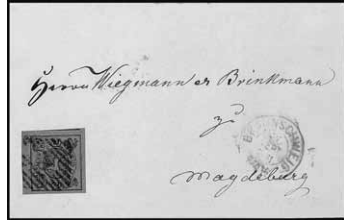 Herrn Wiegmann et Brinkmann
zu
Magdeburg
BRAUNSCHWEIG